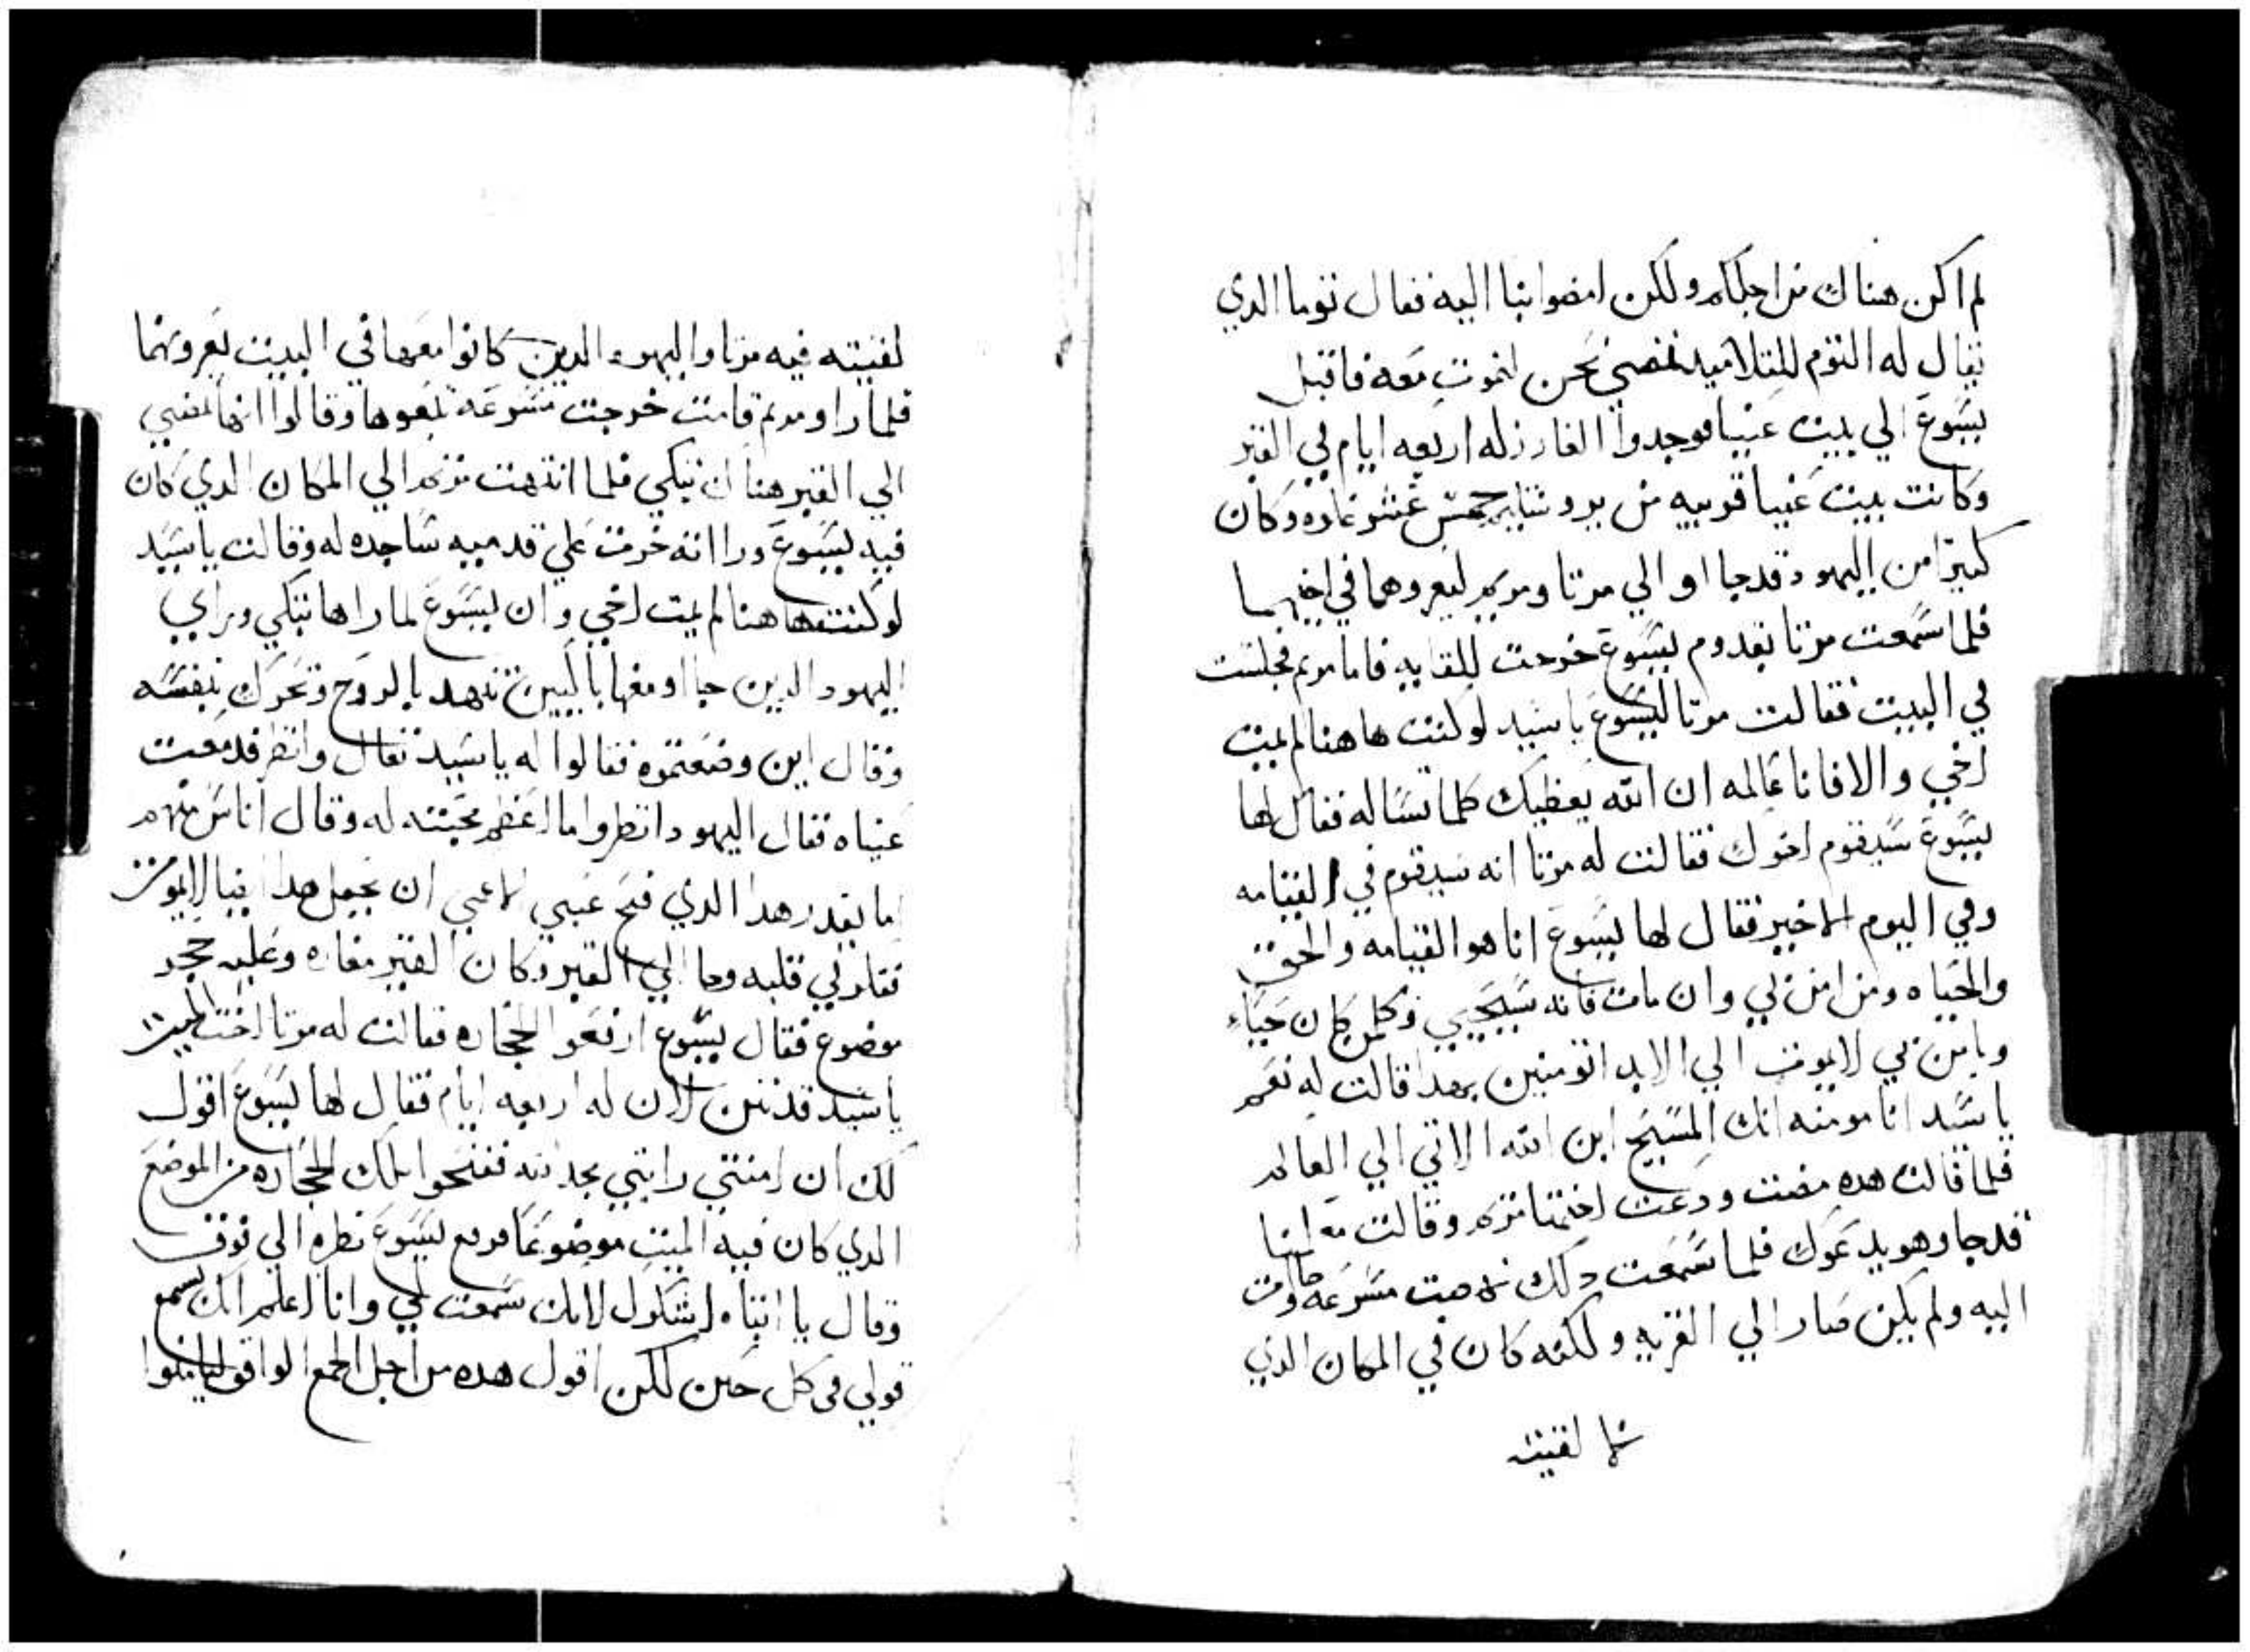 لم اكن هناك من اجلكم ولكن امضوا بنا اليه فقال توما الدي
يقال له التوم للتلاميد نمضي نحن لنموت معه فاقبل
يسوع الي بيت عنيا فوجدوا العازر له اربعه ايام في القبر
وكانت بيت عنيا قريبه من يروشليم خمس عشر غلوه وكان
كتيرا من اليهود قد جااو الي مرتا ومريم ليعزوهما في اخيهما
فلما سمعت مرتا بقدوم يسوع خرجت للقايه فاما مريم فجلست
في البيت فقالت مرتا ليسوع يا سيد لو كنت هاهنا لم يمت
اخي والا فانا عالمه ان الله يعطيك كلما تساله فقال لها
يسوع سيقوم اخوك فقالت له مرتا انه سيقوم في القيامه
وفي اليوم الاخير فقال لها يسوع انا هو القيامه والحق
والحياه ومن امن بي وان مات فانه سيحيي وكلمن كان حياء
ويامن بي لا يموت الي الابد اتومنين بهدا قالت له نعم
يا سيد انا مومنه انك المسيح ابن الله الاتي الي العالم
فلما قالت هده مضت ودعت اختها مريم وقالت معلمنا
قد جا وهو يدعوك فلما سمعت دلك نهضت مسرعه وجات
اليه ولم يكن صار الي القريه ولكنه كان في المكان الدي
لقيته
لقيته فيه مرتا واليهود الدين كانوا معها في البيت يعزونها
فلما راو مريم قامت خرجت مسرعه تبعوها وقالوا انها تمضي
الي القبر هنا ان تبكي فلما انتهت مريم الي المكان الدي كان
فيه يسوع ورااته خرت علي قدميه ساجده له وقالت يا سيد
لو كنت هاهنا لم يمت اخي وان يسوع لما راها تبكي وراي
اليهود الدين جااو معها باكيين تنهد بالروح وتحرك بنفسه
وقال اين وضعتموه فقالوا له يا سيد تعال وانظر فدمعت
عيناه فقال اليهود انظروا ما اعظم محبته له وقال اناس منهم
اما يقدر هدا الدي فتح عيني الاعمي ان يجعل هدا ايضا لا يموت
في قلبه وجا الي القبر وكان القبر مغاره وعليه حجر
موضوع فقال يسوع ارفعو الحجاره فقالت له مرتا اخت الميت
يا سيد قد نتن لان له اربعه ايام فقال لها يسوع اقول
لك ان امنتي رايتي مجد الله فنحوا تلك الحجاره من الموضع
الدي كان فيه الميت موضوعا فرفع يسوع نظره الي فوق
وقال يا ابتاه اشكرك لانك سمعت لي وانا اعلم انك تسمع
قولي في كل حين لكن اقول هده من اجل الجمع الواقف ليامنوا